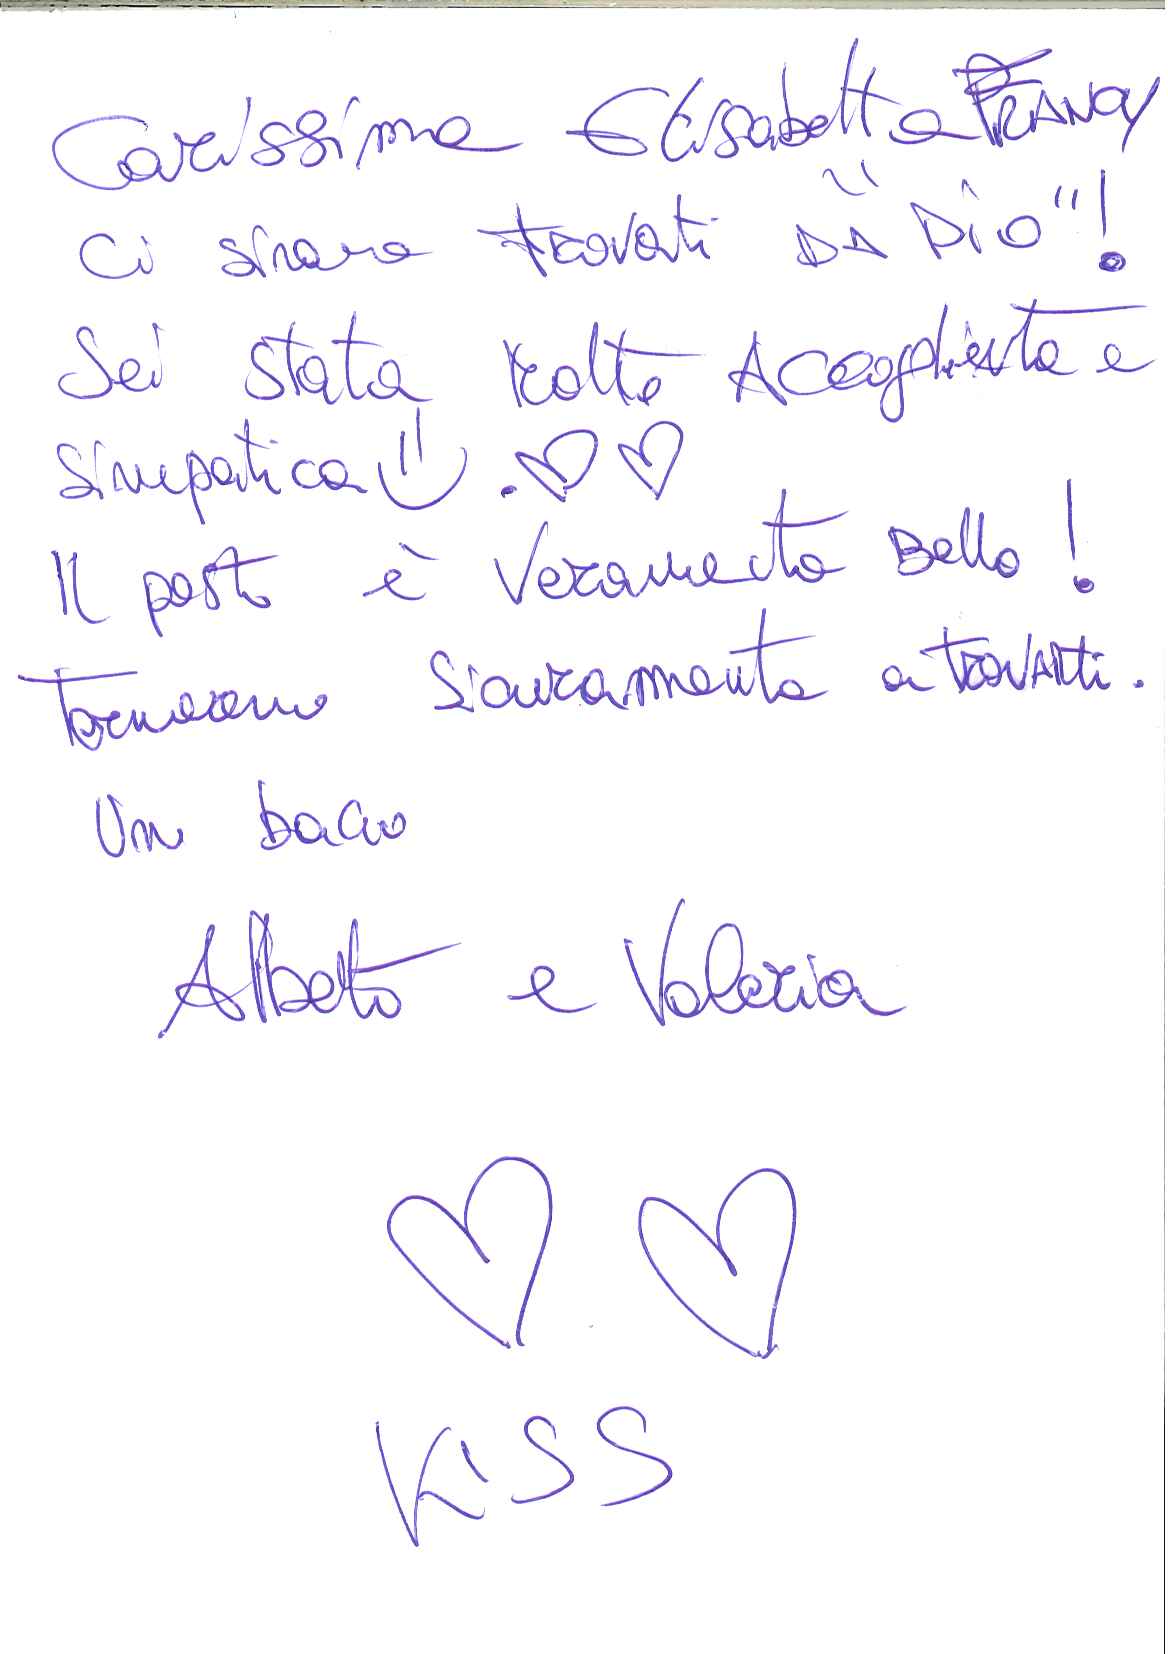 Carissima Elisabetta FRANCY
ci siamo trovati DA "DIO"!
Sei stata molto Accogliente e
simpatica .
Il posto è Veramente Bello!
Torneremo Sicuramente a trovarti.
Un bacio
Alberto e Valeria
KiSS